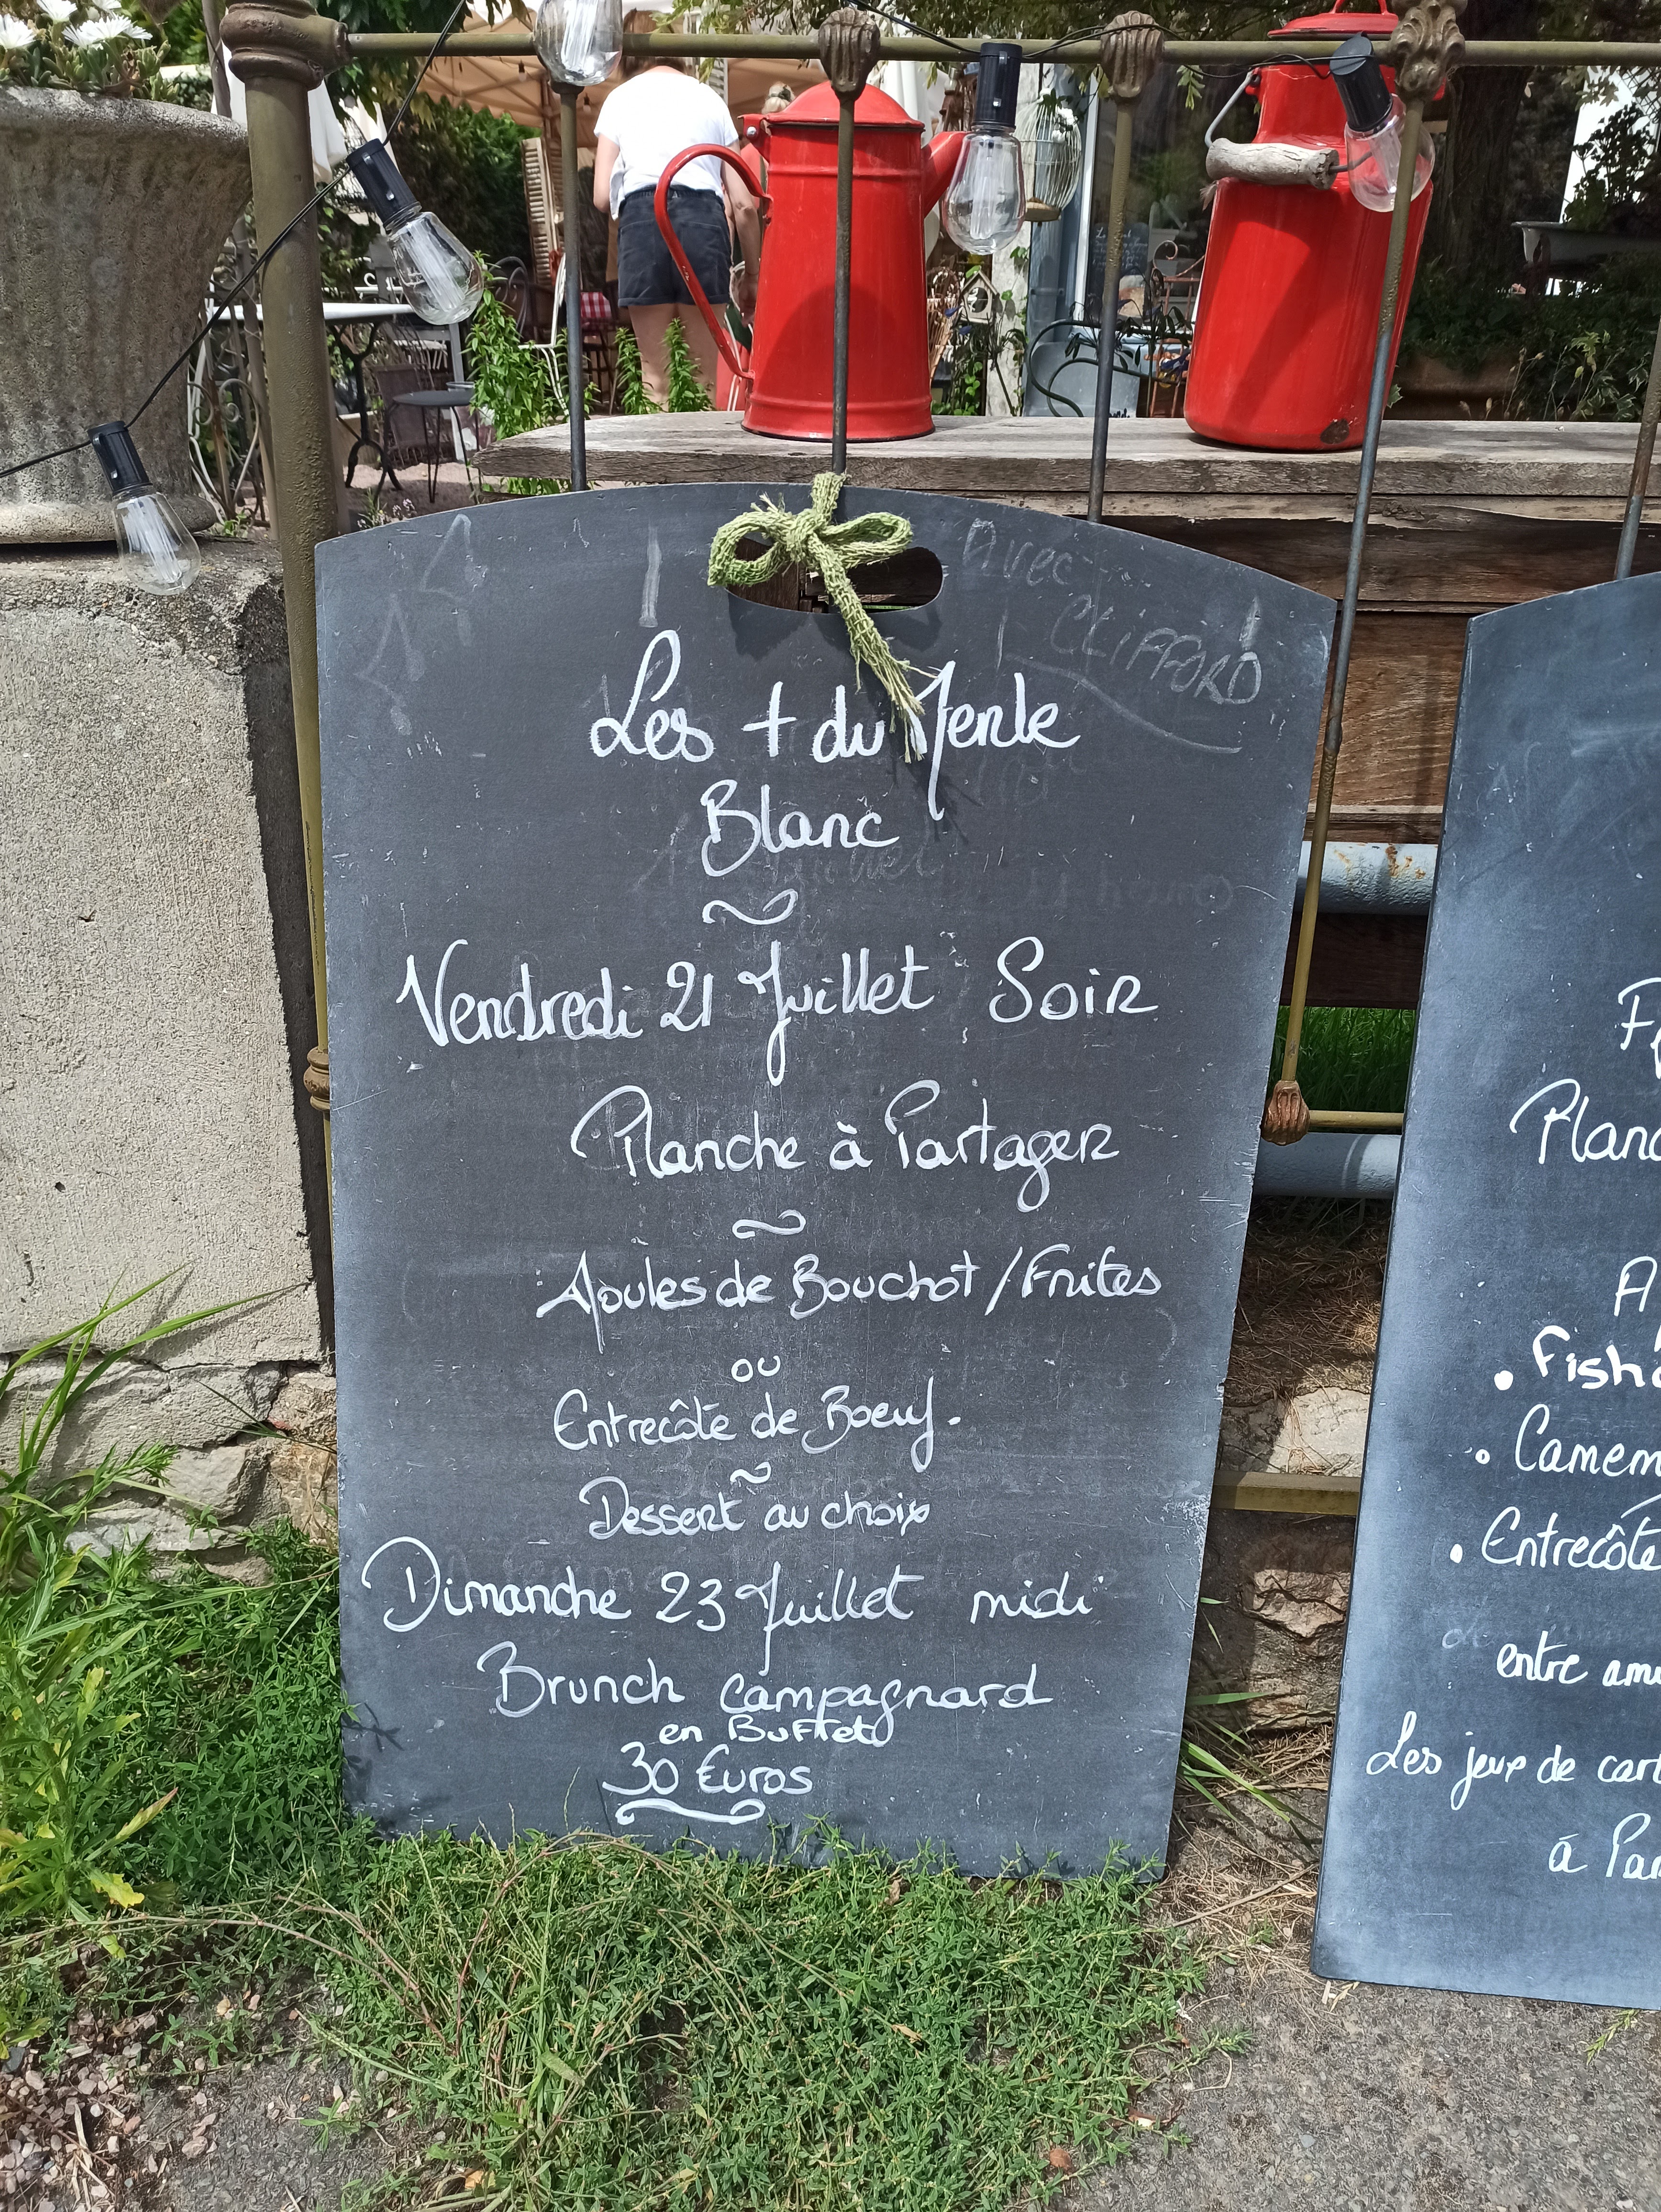 Avec
CLIFFORD
Les + du Merle
Blanc
Vendredi 21 Juillet Soir
Planche à Partager
Moules de Bouchot / Frites
ou
Entrecôte de Boeuf.
Dessert au choix
Dimanche 23 Juillet midi
Brunch campagnard
en Buffet
30 Euros
Planc
A
• Fish
• Camem
• Entrecôte
entre ami
Les jeux de cart
à Par